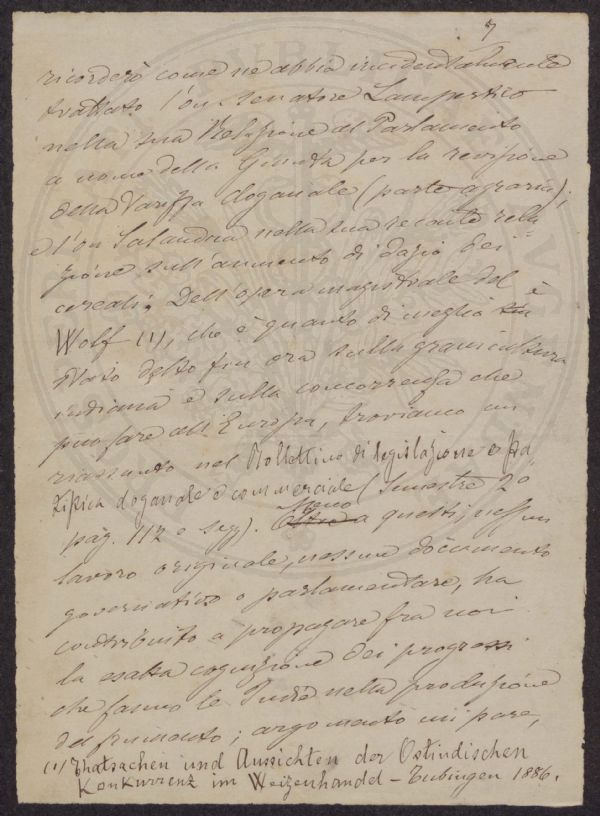 7
ricorderò come ne abbia incidentalmente
trattato l'on. senatore Lampertico
nella sua Relazione al Parlamento
a nome della Giunta per la revisione
della tariffa doganale (parte agraria);
e l'on Salandra nella sua recente rela
zione sull'aumento di dazio dei
cereali. Dell'opera magistrale del
Wolf (1), che è quanto di meglio è
stato detto fin ora sulla granicultura
indiana e sulla concorrenza che
può fare all'Europa, troviamo un
riassunto nel Bollettino di legislazione e sta
tistica doganale e commerciale (Semestre 2º
pag. 112 e seg). Meno questi, nessun
lavoro originale, nessun documento
governativo o parlamentare, ha
contribuito a propagare fra noi
la esatta cognizione dei progressi
che fanno le Indie nella produzione
del frumento; argomento mi pare,
(1) Thatsachen und Aussichten der Ostindischen
Konkurrenz im Weizenhandel - Tubingen 1886.